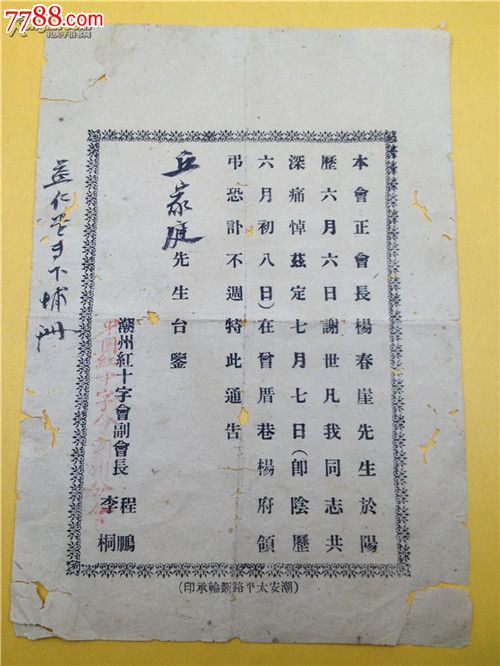 7788.com
本會正會長楊春崖先生於陽
歷六月六日謝世凡我同志共
深痛悼茲定七月七日(卽陰歷
六月初八日)在曾厝巷楊府領
弔恐訃不週特此通告
丘家庭先生台鑒
潮州紅十字會副會長 程鵬
李桐
中國紅十字會潮州分會
益仁里
(潮安太平路 輪承印)